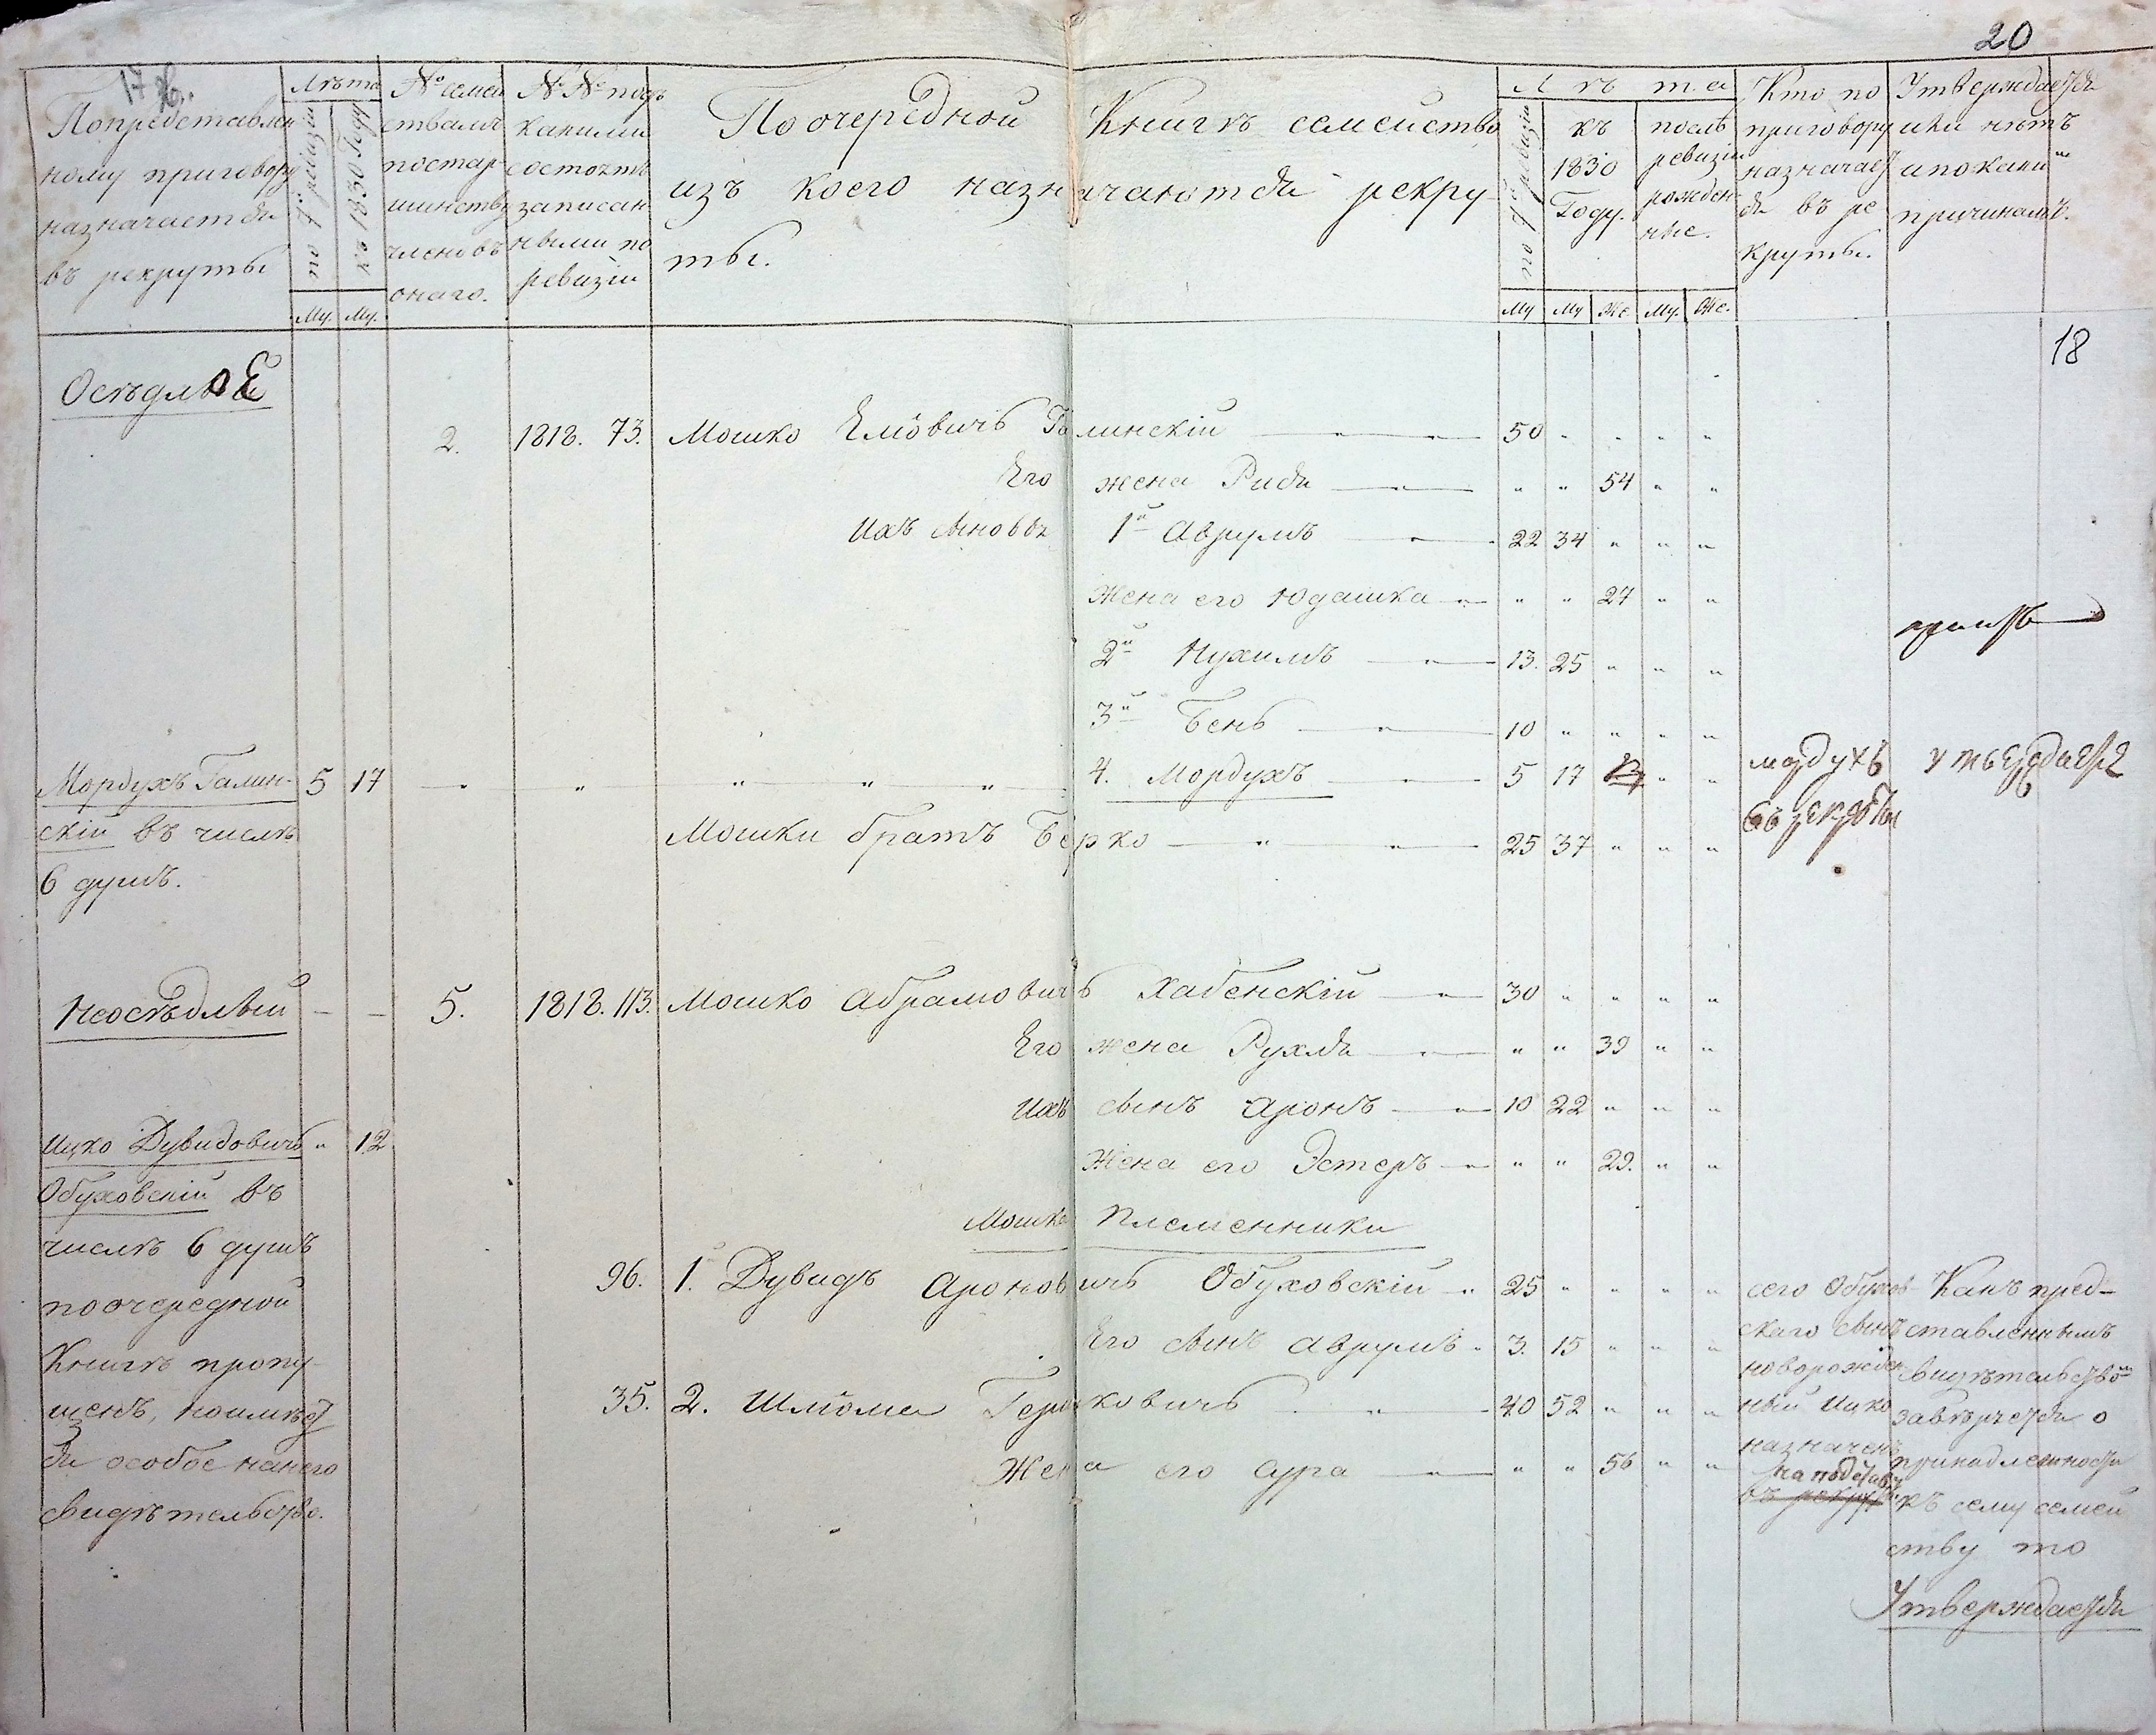 20
17
Попредставлен
ному приговору
назначается
въ рекруты
Лѣта
по 7й ревизіи
къ 1830 Году
Му. Му.
№ семей
ствамъ
постар
шинству
членовъ
онаго.
№ № подъ
какими
состоятъ
записан
ными по
ревизіи
Поочередной Книгѣ семейство
изъ коего назначаются рекру
ты.
Лѣта
по 7й ревизіи
къ
1830
Году.
послѣ
ревизіи
рожден
ные.
Му Му Же Му. Же.
Кто по
приговору
назначает
ся въ ре
круты.
Утверждается
или нѣтъ
и по каким
причинамъ.
18
Осѣдлые
2. 1818. 73. Мошко Елiовичъ Галинскій 50 " " " "
Его жена Рися " " 54 " "
Ихъ сыновья 1й Аврумъ 22 34 " " "
Жена его Юдашка " " 27 " "
2й Нухимъ 13. 25 " " "
3й Бень 10 " " " "
Мордухъ Галин-
скій въ числѣ
6 душъ.
5 17 " " " " " 4. Мордухъ 5 17 " "
мордухъ
въ рекруты
утверждается
Мошки братъ Берко 25 37 " " "
Неосѣдлый — — 5. 1818. 113. Мошко Абрамовичъ Хабенскій 30 " " " "
Его жена Рухля " " 39 " "
Ихъ сынъ Аронъ 10 22 " " "
Жена его Эстеръ " " 29. " "
Ицко Дувидовичъ " 12
Обуховскій въ
числѣ 6 душъ
поочередной
Книгѣ пропу
щенъ, но имѣет
ся особое нанего
свидѣтельство.
Мошка Племенники
96. 1. Дувидъ Ароновичъ Обуховскій 25 " " " "
Его сынъ Аврумъ 3. 15 " " "
35. 2. Шлiома Герковичъ 40 52 " " "
Жена его Сура " " 56 " "
сего Обухов
скаго сынъ
новорожден
ный Ицко
назначенъ
на подставу
въ рекруты
Какъ пред-
ставленнымъ
свидѣтельством
завѣряется о
принадлежности
къ сему семей
ству то
Утверждается